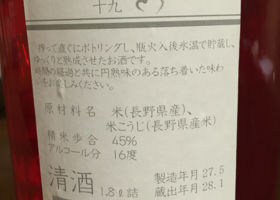 十九
搾って直ぐにボトリングし、瓶火入後氷温で貯蔵し、
ゆっくりと熟成させたお酒です。
時間の経過と共に円熟味のある落ち着いた味わ
いをお楽しみください。
原材料名 米(長野県産)、
米こうじ(長野県産米)
精米歩合 45%
アルコール分 16度
清酒 1.8ℓ詰
製造年月 27.5
蔵出年月 28.1